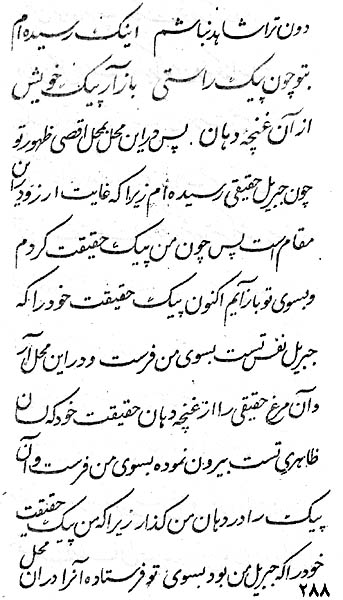 دون ترا شاهد نباشم اینک رسیده ام
بتو چون پیک راستی باز آر پیک خویش
از آن غنچه دهان. پس در این محل بمحل اقصی ظهور تو
چون جبریل حقیقی رسیده ام زیرا که غایت ارزو در آن
مقام است پس چون من پیک حقیقت کردم
و بسوی تو باز آیم اکنون پیک حقیقت خود را که
جبریل نفس تست بسوی من فرست و در این محل آر
و آن مرغ حقیقی را از غنچه دهان حقیقت خود که لسان
ظاهری تست بیرون نموده بسوی من فرست و آن
پیک را در دهان من گذار زیرا که من پیک حقیقت
خود را که جبریل من بود بسوی تو فرستاده آنرا در ان محل
۲۸۸